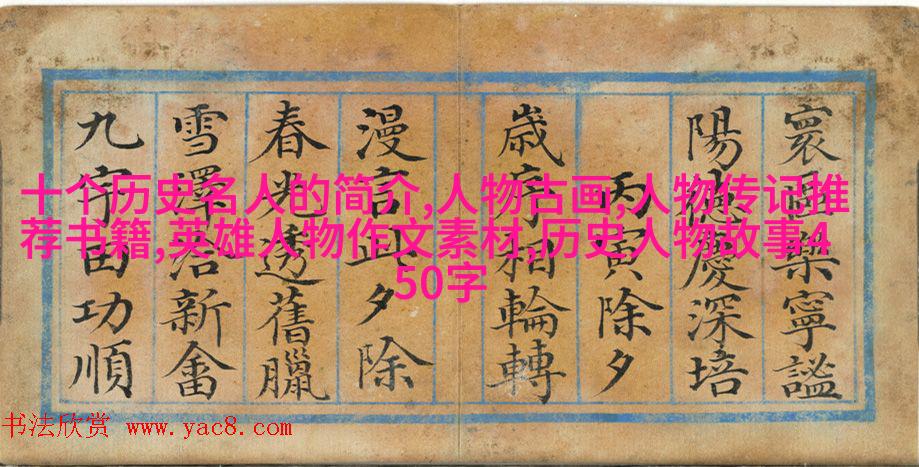 十个历史名人的简介,人物古画,人物传记推
荐书籍,英雄人物作文素材,历史人物故事4
50字
寰區樂寧謐
陽德慶深培
丙寅除夕
歲序相輪轉
漫言此夕除
春光透舊臘
雪澤洽新畬
九宇田功順
书法欣赏 www.yac8.com